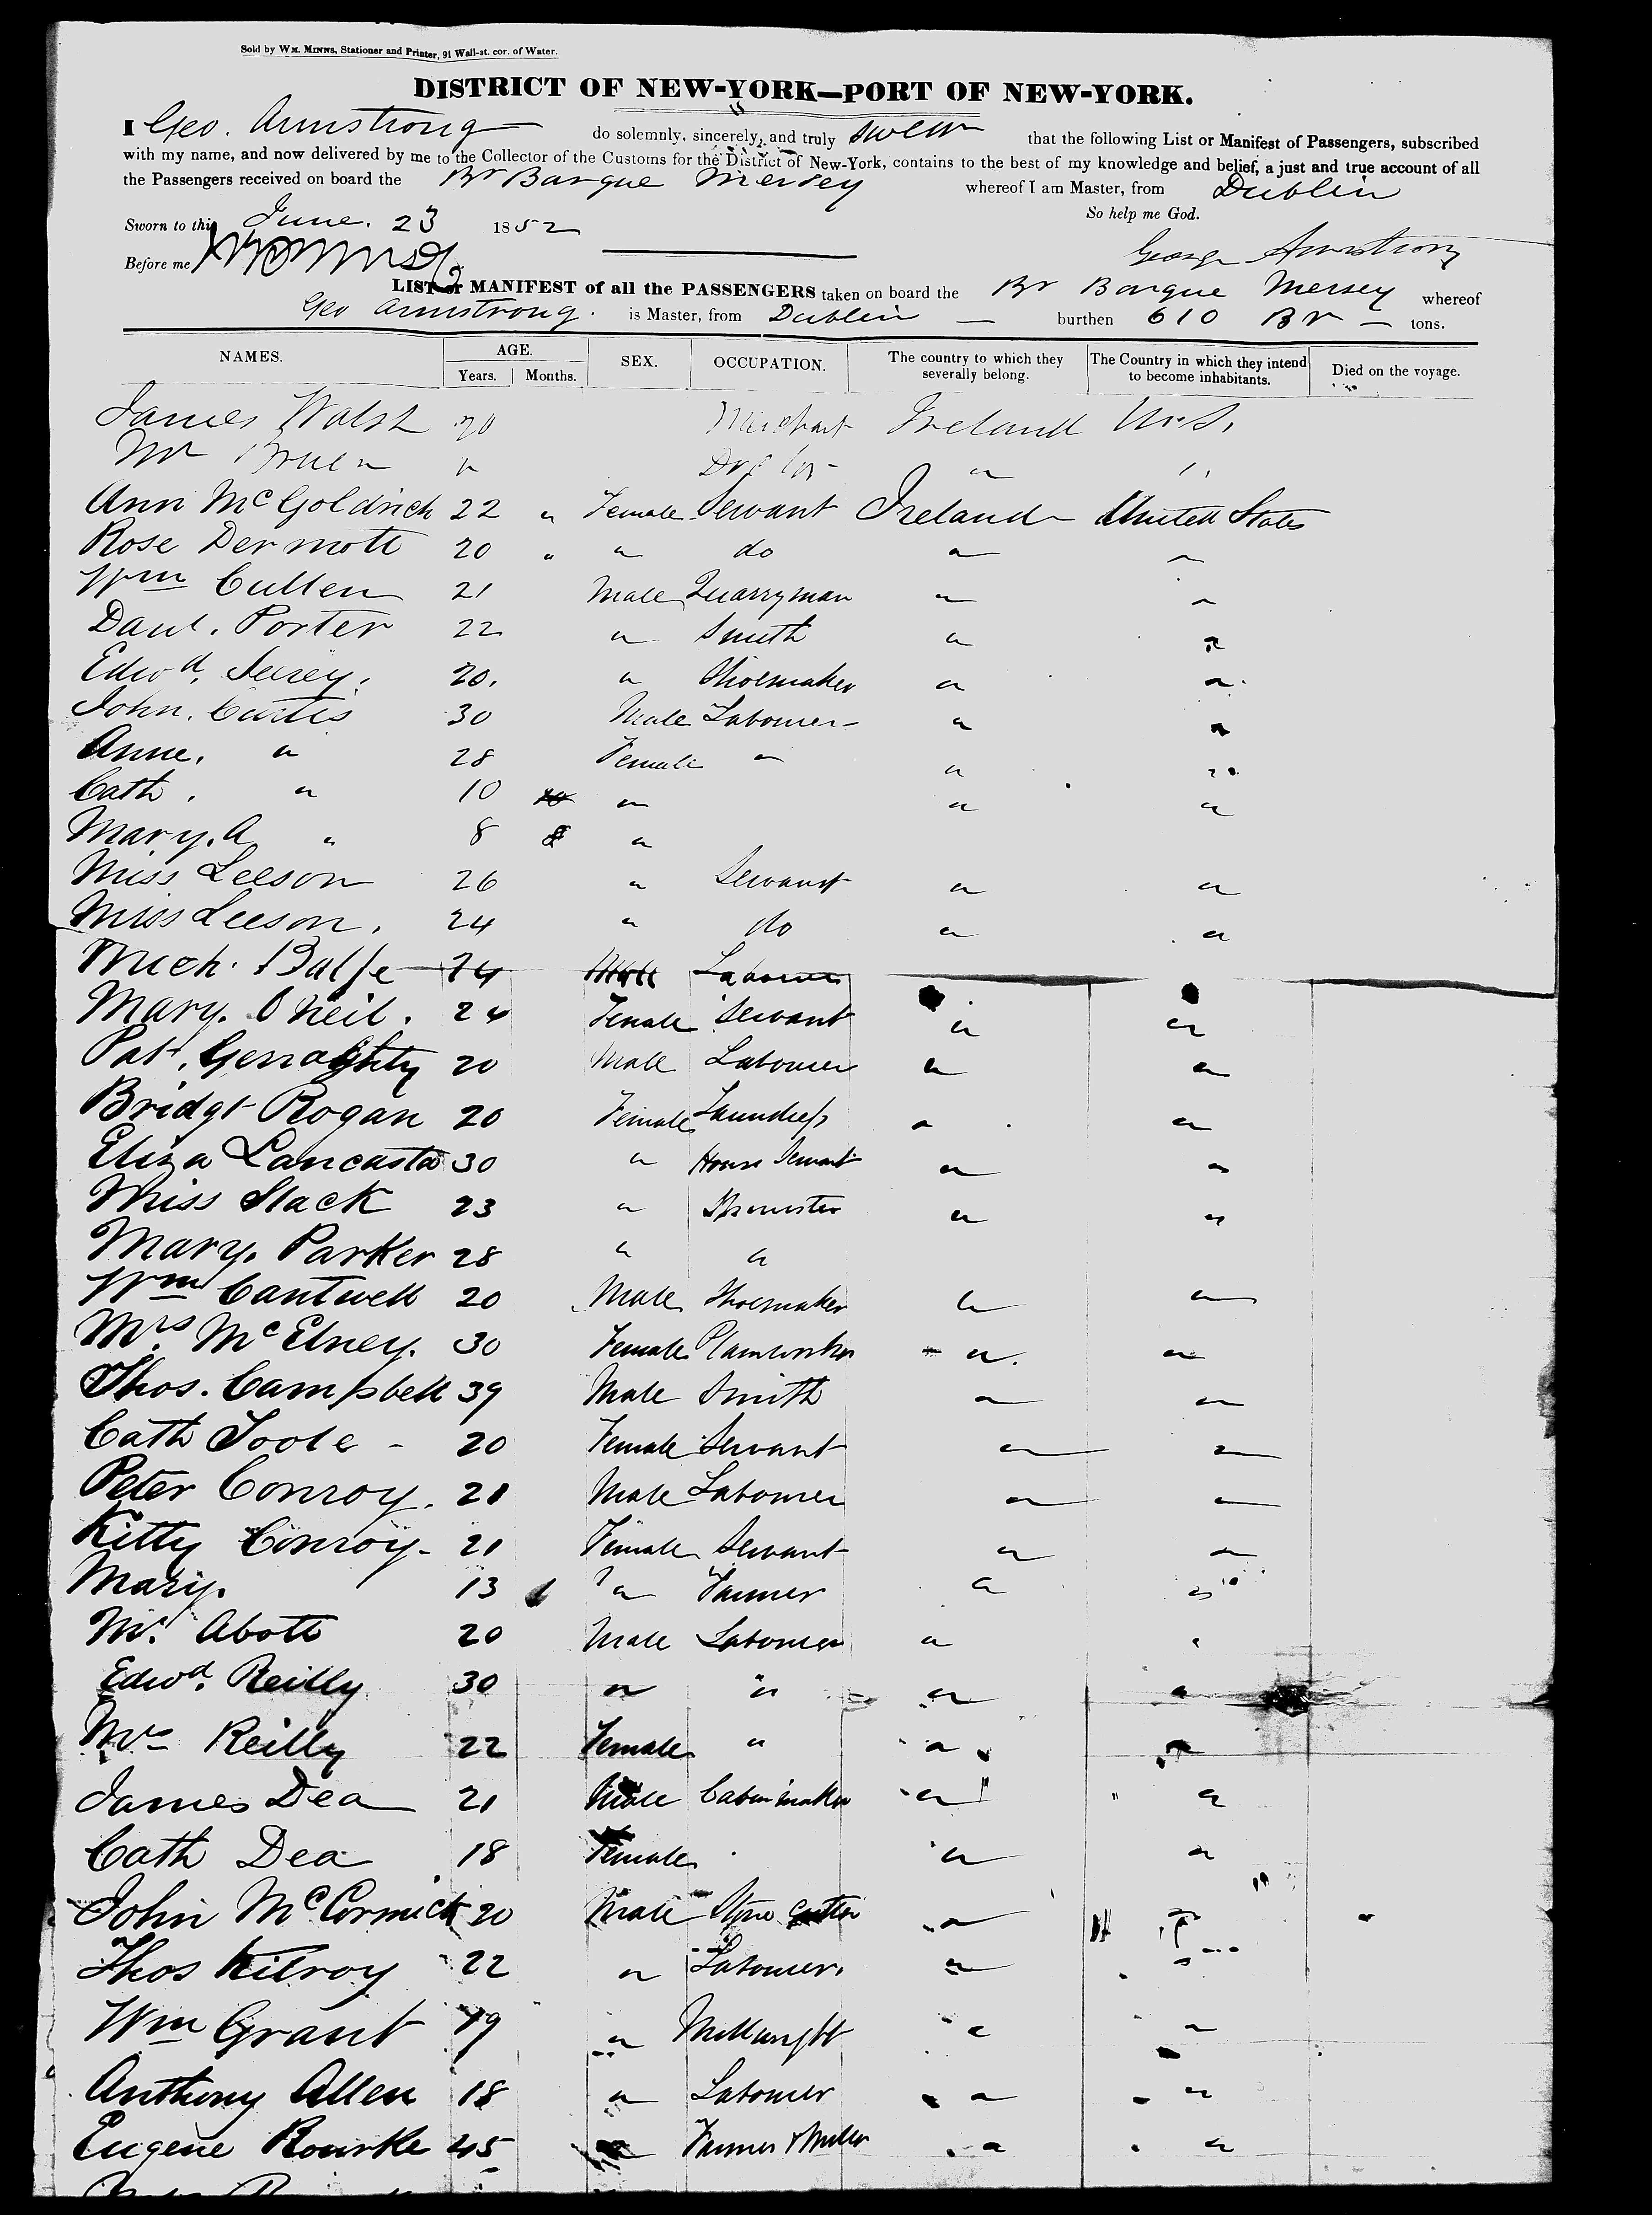 Sold by Wm. Minns, Stationer and Printer, 91 Wall-st. cor. of Water.
DISTRICT OF NEW-YORK—PORT OF NEW-YORK.
I Geo. Armstrong do solemnly, sincerely, and truly swear that the following List or Manifest of Passengers, subscribed
with my name, and now delivered by me to the Collector of the Customs for the District of New-York, contains to the best of my knowledge and belief, a just and true account of all
the Passengers received on board the Br Barque Mersey whereof I am Master, from Dublin
So help me God.
Sworn to this June. 23 1852
George Armstrong
Before me
LIST or MANIFEST of all the PASSENGERS taken on board the Br Barque Mersey whereof
Geo Armstrong. is Master, from Dublin — burthen 610 Br — tons.
NAMES. AGE. Years. Months. SEX. OCCUPATION. The country to which they severally belong. The Country in which they intend to become inhabitants. Died on the voyage.
James Walsh Merchant Ireland U.S.
Mr Bruen " " "
Ann McGoldrich 22 " Female Servant Ireland United States
Rose Dermott 20 " " do " "
Wm Cullen 21 Male Quarryman " "
Danl. Porter 22 " Smith " "
Edwd. 20. " Shoemaker " "
John. Curtis 30 Male Labourer " "
Anne. " 28 Female " " "
Cath. " 10 10 " " "
Mary. A " 8 8 "
Miss Leeson 26 " Servant " "
Miss Leeson. 24 " do " "
Mich. Balfe 24 Male Labourer
Mary. O Neil. 24 Female Servant " "
Pat. Geraghty 20 Male Labourer " "
Bridgt Rogan 20 Female Laundress " "
Eliza Lancaster 30 " House Servant " "
Miss Slack 23 " Spinster " "
Mary. Parker 28 " "
Wm Cantwell 20 Male Shoemaker " "
Mrs. McElney. 30 Female Plainworker " "
Thos. Campbell 39 Male Smith " "
Cath Toole - 20 Female Servant " "
Peter Conroy. 21 Male Labourer " "
Kitty Conroy- 21 Female Servant " "
Mary. 13 " Farmer " "
Mr. Abott 20 Male Labourer " "
Edwd. Reilly 30 " " " "
Mrs Reilly 22 Female " " "
James Dea 21 Male Cabinmaker " "
Cath Dea 18 Female " "
John McCormick 20 Male Stone Cutter " "
Thos Kilroy 22 " Labourer. " "
Wm Grant 19 " Millwright " "
Anthony Allen 18 " Labourer " "
Eugene Rourke 45 " Farmer & Miller " "